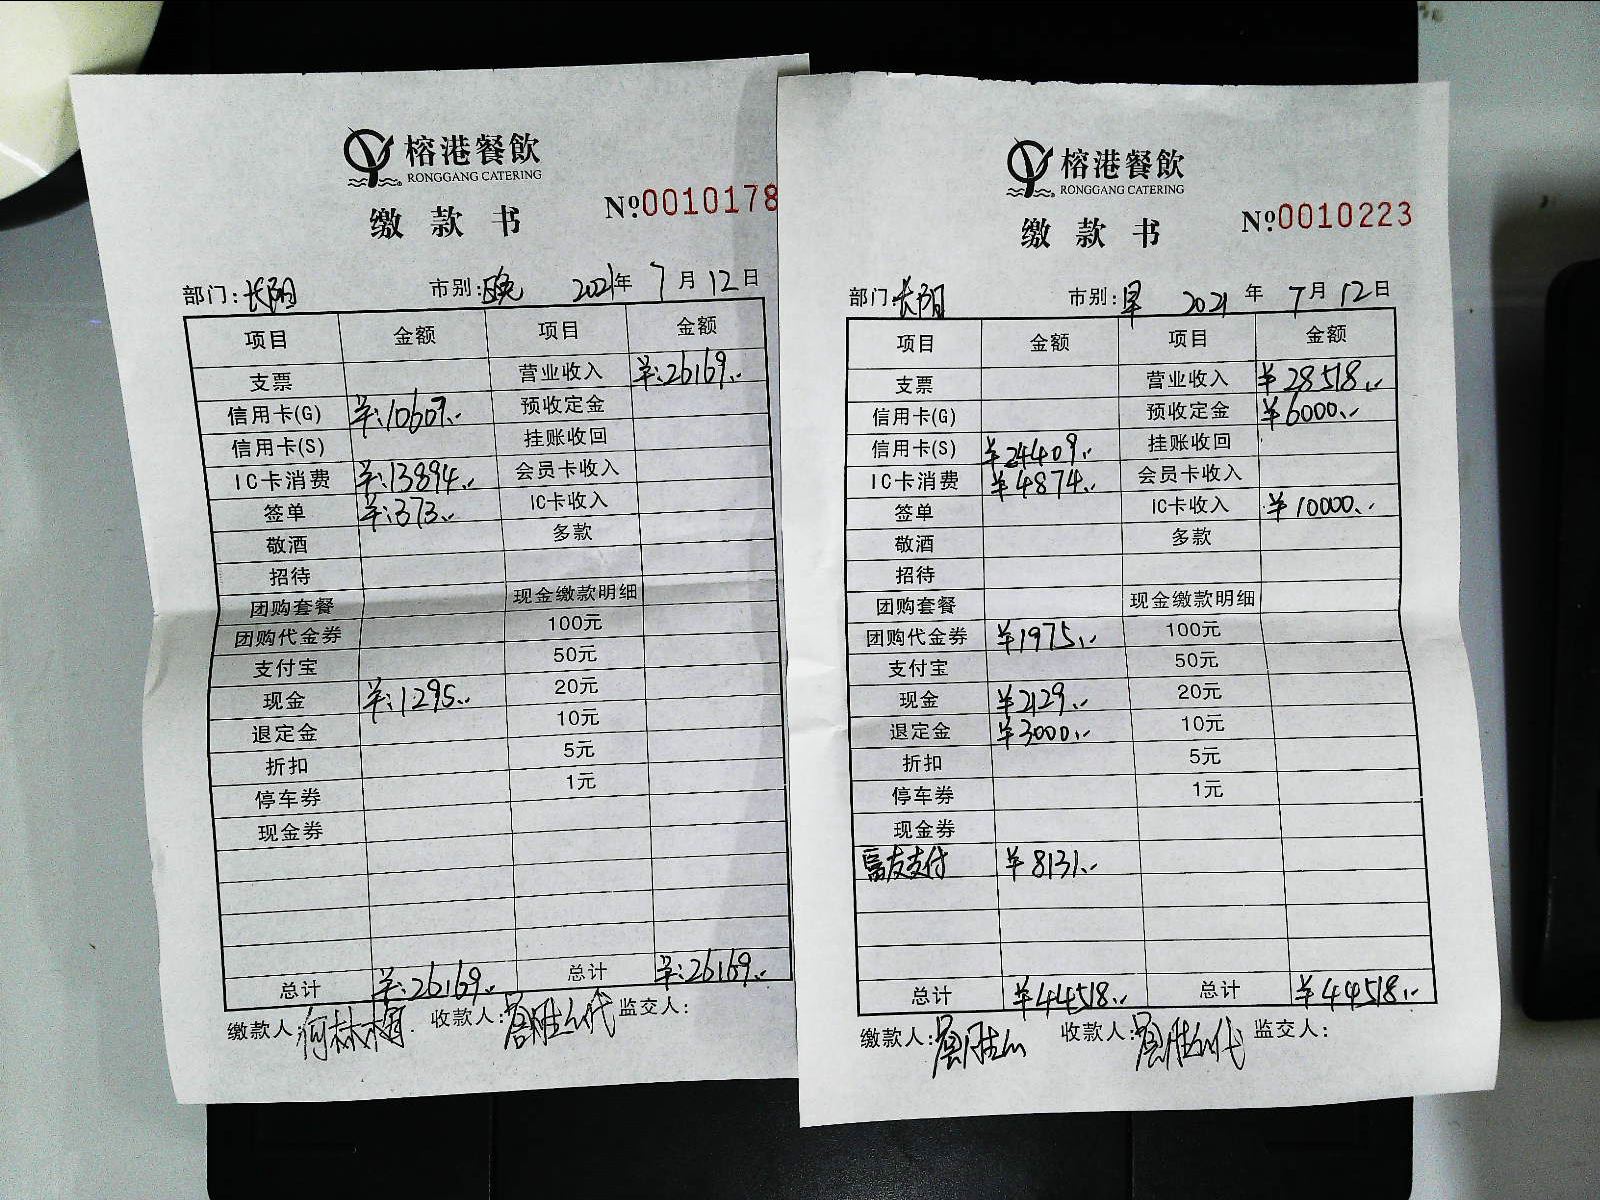 榕港餐飲
RONGGANG CATERING
缴款书 №0010178
部门:长阳 市别:晚 2021年7月12日
项目 金额 项目 金额
支票 营业收入 ¥:26169..
信用卡(G) ¥:10607.. 预收定金
信用卡(S) 挂账收回
IC卡消费 ¥:13894.. 会员卡收入
签单 ¥:373.. IC卡收入
敬酒 多款
招待
团购套餐 现金缴款明细
团购代金券 100元
支付宝 50元
现金 ¥:1295.. 20元
退定金 10元
折扣 5元
停车券 1元
现金券
总计 ¥:26169.. 总计 ¥:26169..
缴款人: 收款人: 监交人:
榕港餐飲
RONGGANG CATERING
缴款书 №0010223
部门:长阳 市别:早 2021年7月12日
项目 金额 项目 金额
支票 营业收入 ¥28518..
信用卡(G) 预收定金 ¥6000..
信用卡(S) ¥24409.. 挂账收回
IC卡消费 ¥4874.. 会员卡收入
签单 IC卡收入 ¥10000..
敬酒 多款
招待
团购套餐 现金缴款明细
团购代金券 ¥1975.. 100元
支付宝 50元
现金 ¥2129.. 20元
退定金 ¥3000.. 10元
折扣 5元
停车券 1元
现金券
富友支付 ¥8131..
总计 ¥44518.. 总计 ¥44518..
缴款人: 收款人: 监交人: